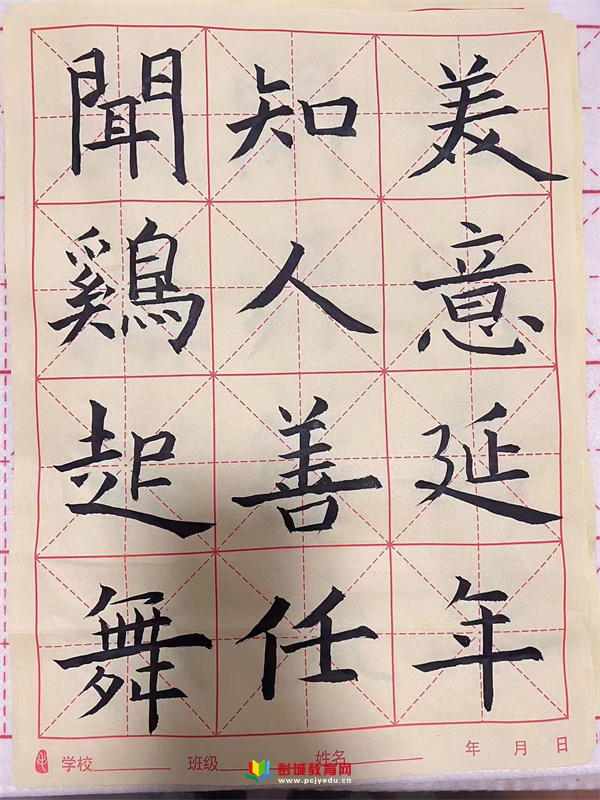 美意延年
知人善任
聞鷄起舞
学校 班级 姓名 年 月 日
彭城教育网
www.pcjyedu.cn